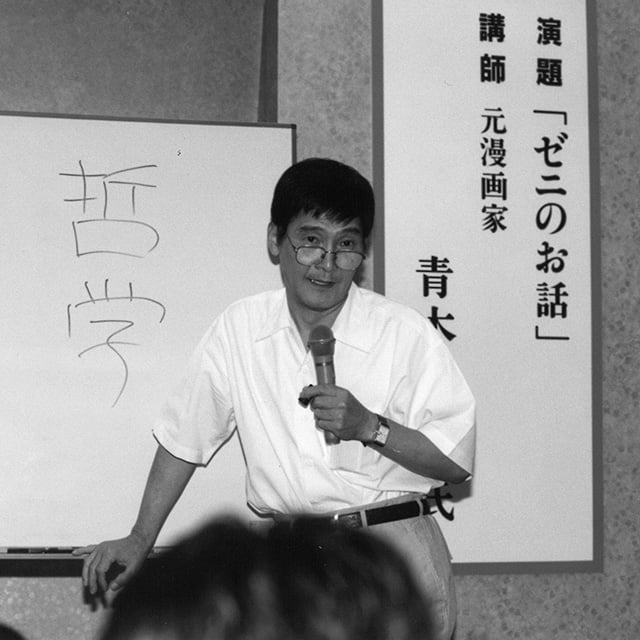 演題「ゼニのお話」
講師 元漫画家
青木 氏
哲学